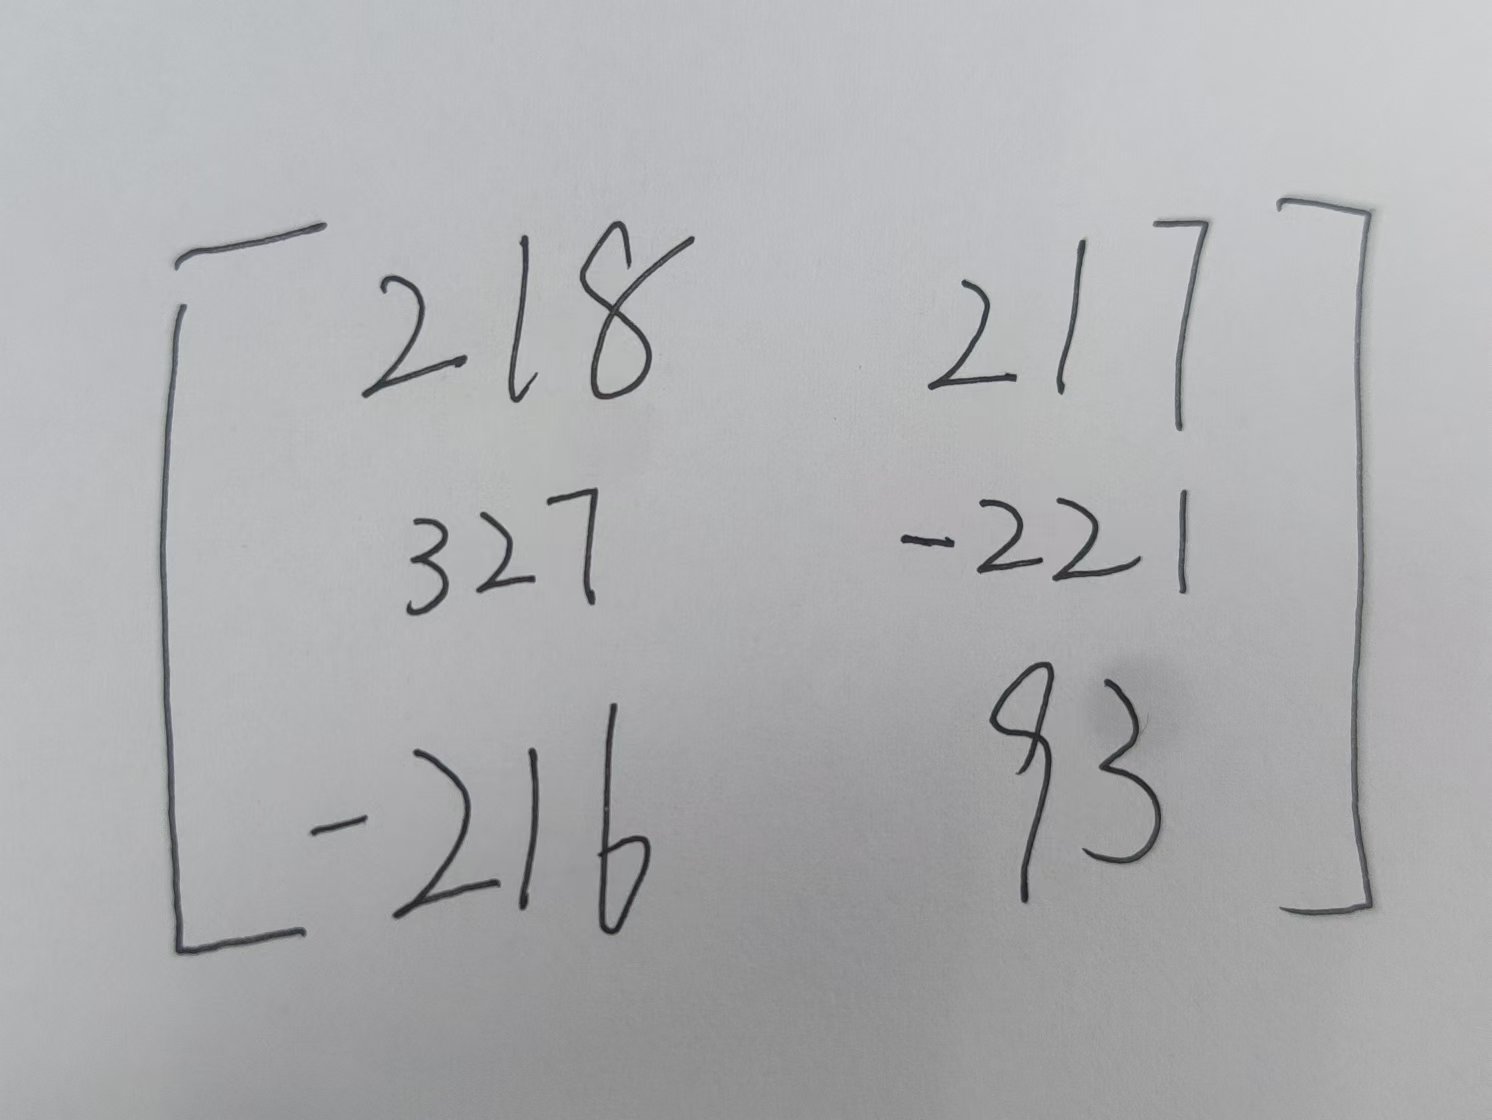 218 217
327 -221
-216 93